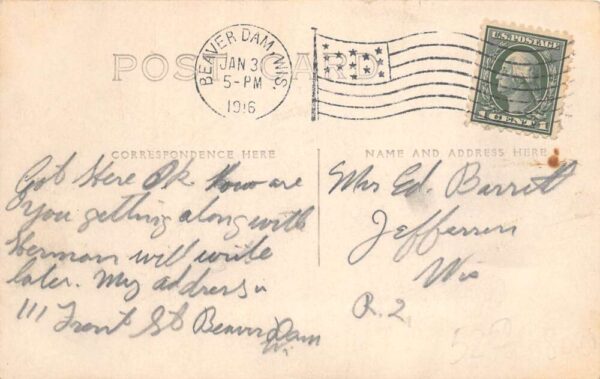 POST CARD
BEAVER DAM, WIS.
JAN 3
5-PM
1916
U.S. POSTAGE
1 CENT 1
CORRESPONDENCE HERE
NAME AND ADDRESS HERE
Got Here Ok how are
you getting along with
Herman will write
later. My address is
111 Front St Beaver Dam
Wis
Mrs Ed. Barrett
Jefferson
Wis
R. 2